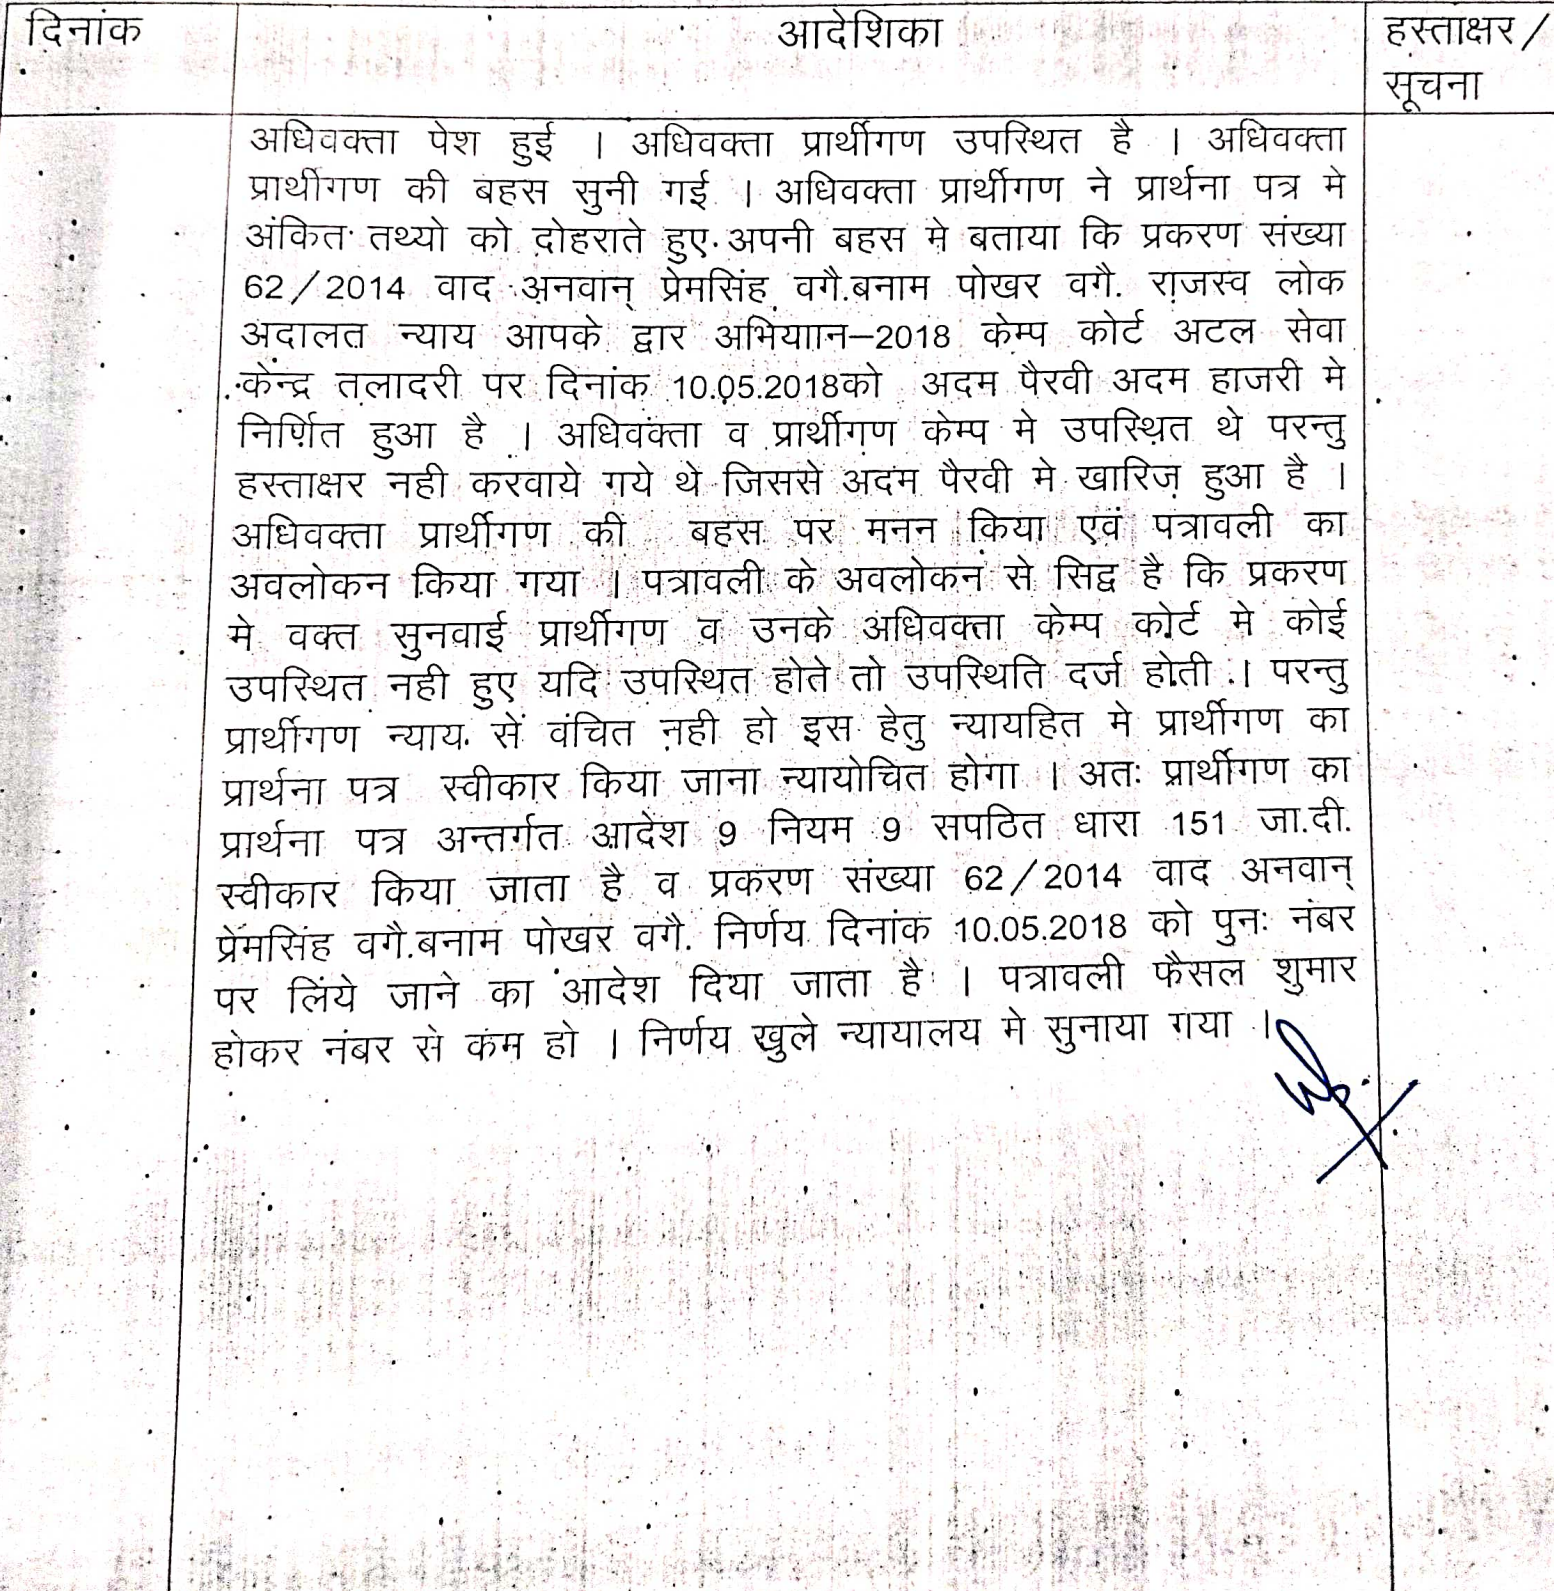 दिनांक आदेशिका हस्ताक्षर/
सूचना
अधिवक्ता पेश हुई । अधिवक्ता प्रार्थीगण उपस्थित है । अधिवक्ता
प्रार्थीगण की बहस सुनी गई । अधिवक्ता प्रार्थीगण ने प्रार्थना पत्र मे
अंकित तथ्यो को दोहराते हुए अपनी बहस मे बताया कि प्रकरण संख्या
62/2014 वाद अनवान् प्रेमसिंह वगै.बनाम पोखर वगै. राजस्व लोक
अदालत न्याय आपके द्वार अभियाान–2018 केम्प कोर्ट अटल सेवा
केन्द्र तलादरी पर दिनांक 10.05.2018को अदम पैरवी अदम हाजरी मे
निर्णित हुआ है । अधिवक्ता व प्रार्थीगण केम्प मे उपस्थित थे परन्तु
हस्ताक्षर नही करवाये गये थे जिससे अदम पैरवी मे खारिज हुआ है ।
अधिवक्ता प्रार्थीगण की बहस पर मनन किया एवं पत्रावली का
अवलोकन किया गया । पत्रावली के अवलोकन से सिद्व है कि प्रकरण
मे वक्त सुनवाई प्रार्थीगण व उनके अधिवक्ता केम्प कोर्ट मे कोई
उपस्थित नही हुए यदि उपस्थित होते तो उपस्थिति दर्ज होती । परन्तु
प्रार्थीगण न्याय से वंचित नही हो इस हेतु न्यायहित मे प्रार्थीगण का
प्रार्थना पत्र स्वीकार किया जाना न्यायोचित होगा । अतः प्रार्थीगण का
प्रार्थना पत्र अन्तर्गत आदेश 9 नियम 9 सपठित धारा 151 जा.दी.
स्वीकार किया जाता है व प्रकरण संख्या 62/2014 वाद अनवान्
प्रेमसिंह वगै.बनाम पोखर वगै. निर्णय दिनांक 10.05.2018 को पुनः नंबर
पर लिये जाने का आदेश दिया जाता है । पत्रावली फैसल शुमार
होकर नंबर से कम हो । निर्णय खुले न्यायालय मे सुनाया गया ।